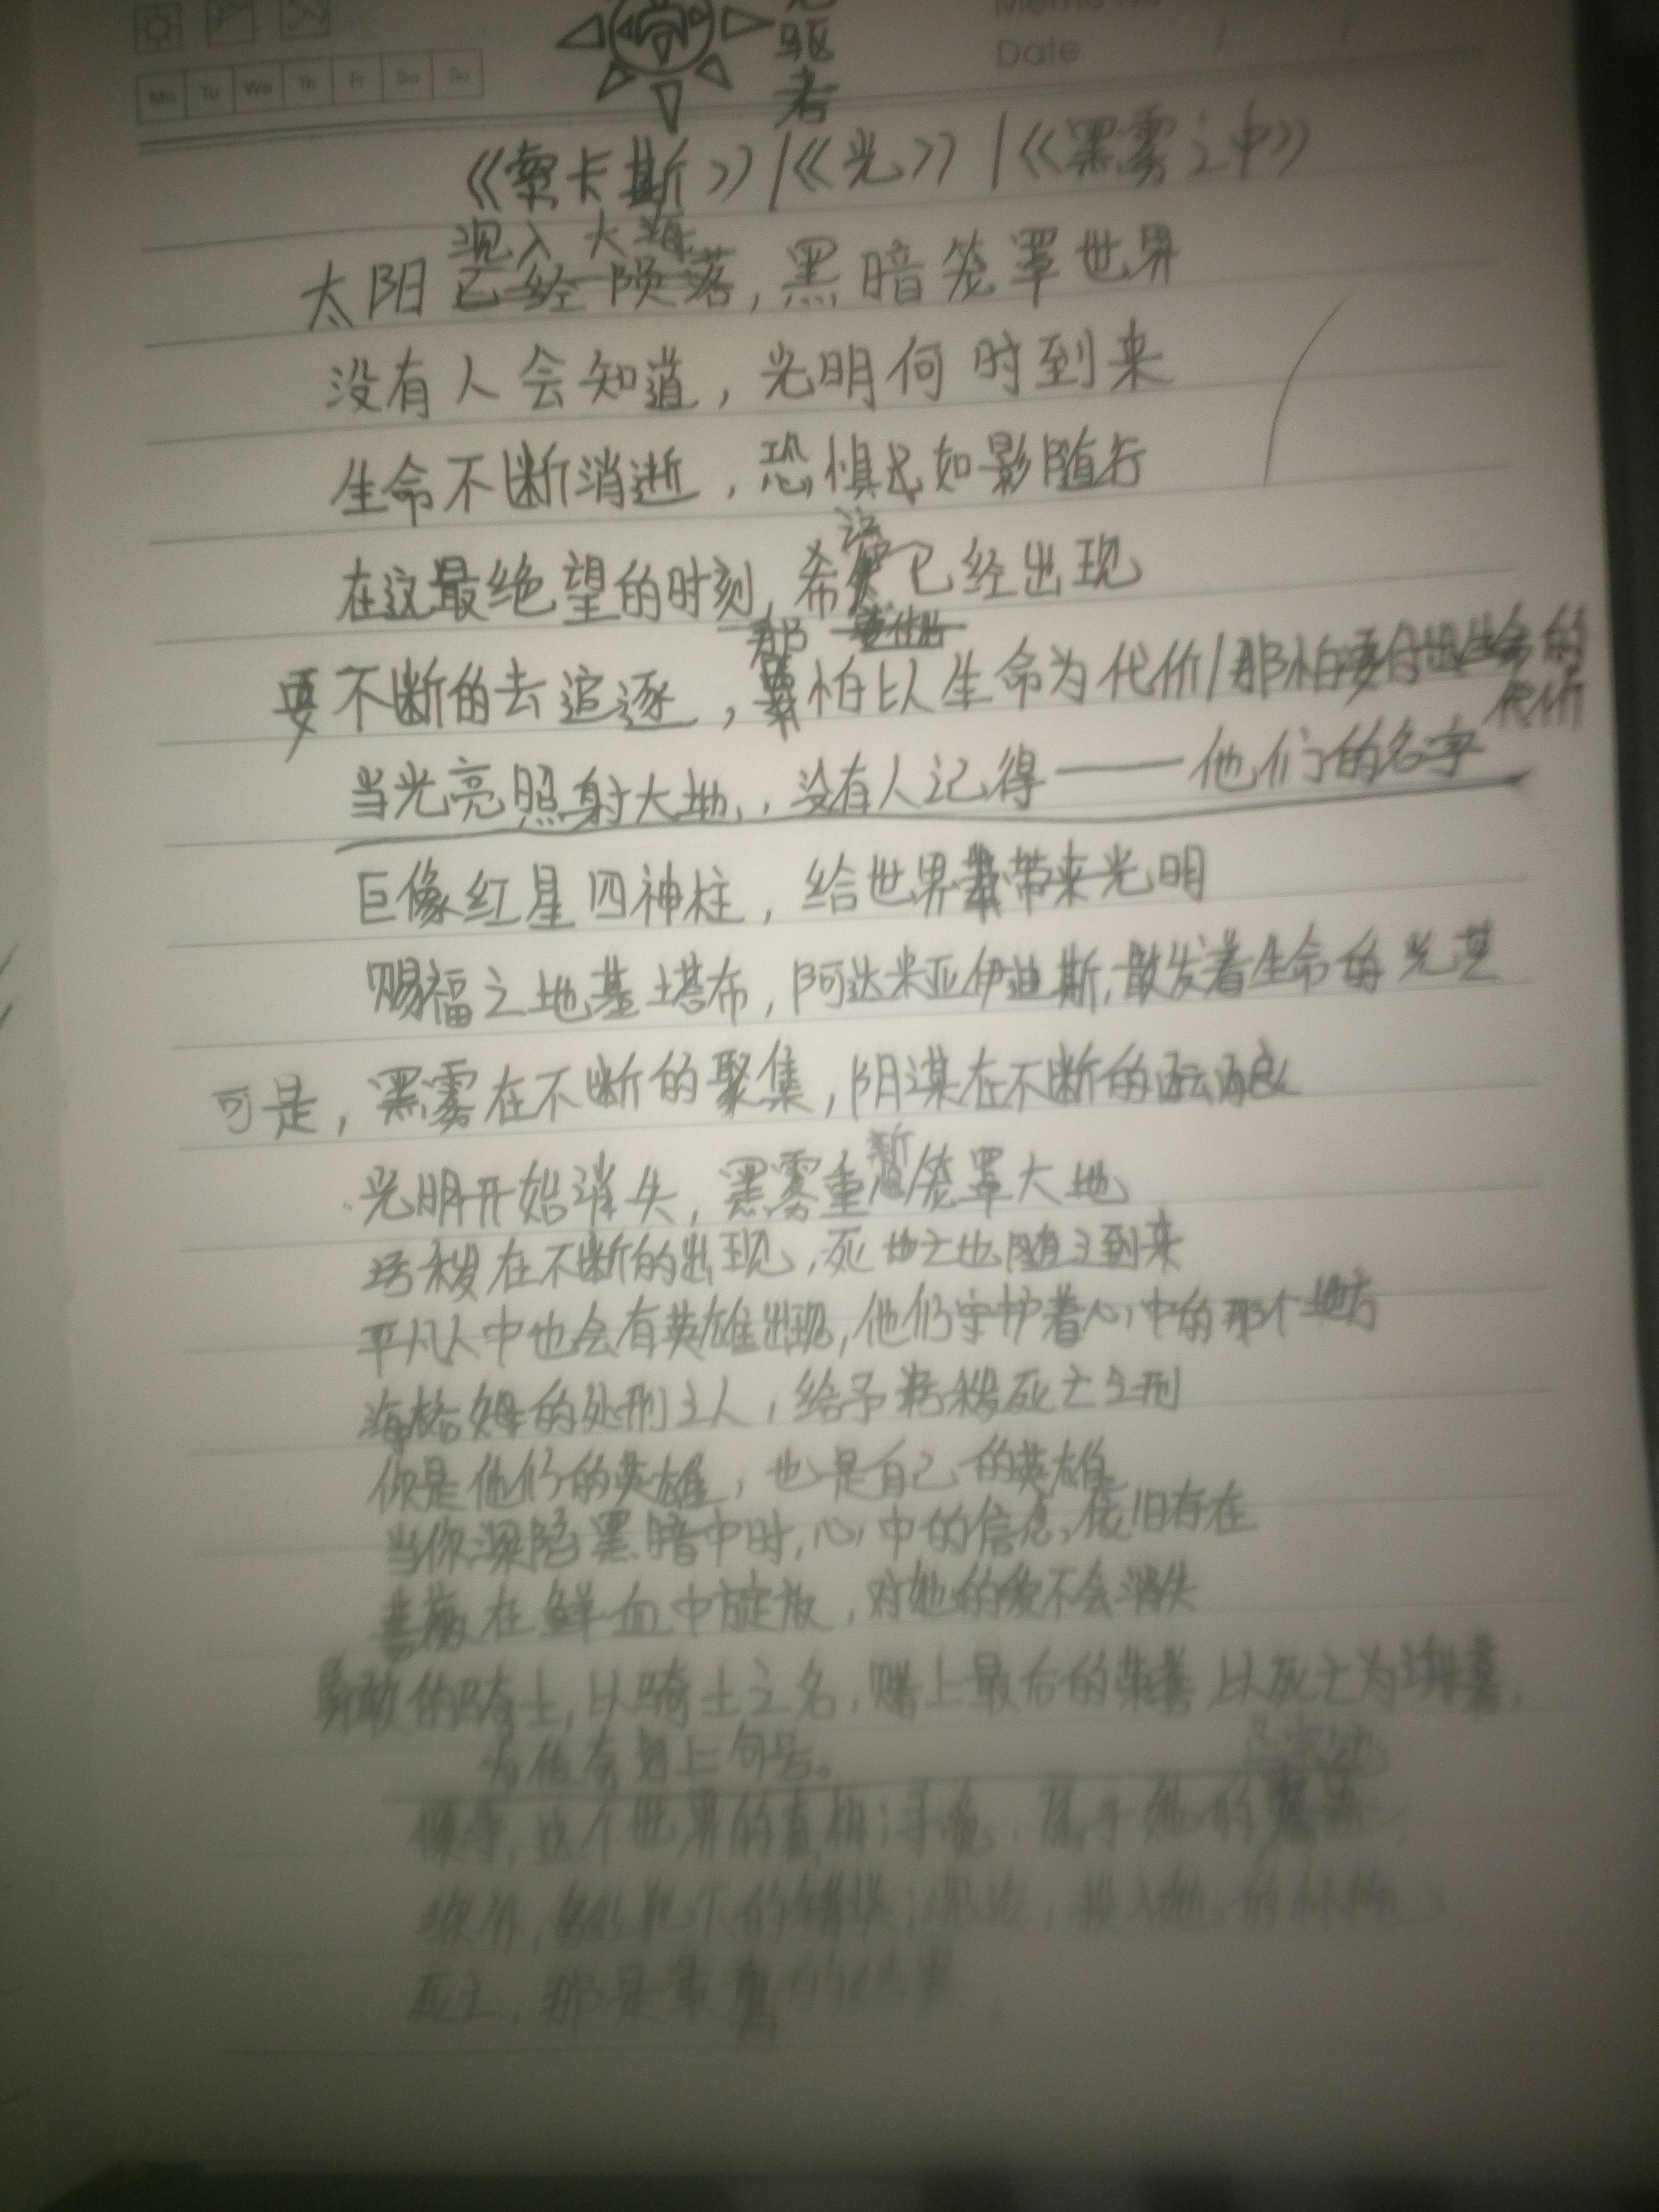 Memo No
Date / /
Mo Tu We Th Fr Sa Su
驱者
《索卡斯》/《光》/《黑雾之中》
沉入大海
太阳已经陨落,黑暗笼罩世界
没有人会知道,光明何时到来
生命不断消逝,恐惧也如影随行
在这最绝望的时刻,希望已经出现
那 要付出
要不断的去追逐,怕以生命为代价/那怕要付出生命的
代价
当光亮照射大地,没有人记得——他们的名字
巨像红星四神柱,给世界带来光明
赐福之地基土塔布,阿达米亚伊迪斯,散发着生命的光芒
可是,黑雾在不断的聚集,阴谋在不断的酝酿
新
光明开始消失,黑雾重笼罩大地
污秽在不断的出现,死亡也随之到来
平凡人中也会有英雄出现,他们守护着心中的那个地方
海格姆的处刑主人,给予污秽死亡之刑
你是他们的英雄,也是自己的英雄
当你深陷黑暗中时,心中的信念,依旧存在
蔷薇在鲜血中旋放,对她的爱不会消失
勇敢的骑士,以骑士之名,赌上最后的荣誉以死亡为谢幕,
为传奇划上句号。
这个世界的真相;寻觅,属于她的
死亡,那是